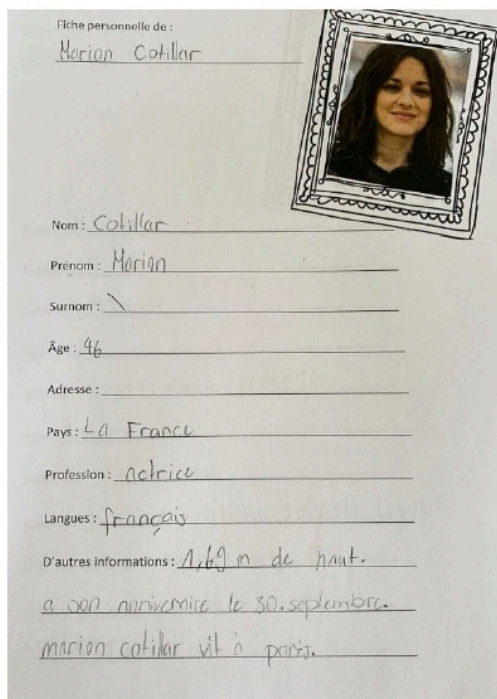 Fiche personnelle de :
Marion Cotillar
Nom : Cotillar
Prénom : Marion
Surnom : \
Âge : 46
Adresse :
Pays : La France
Profession : actrice
Langues : français
D'autres informations : 1,69 m de haut.
a son annivemire le 30. septembre.
marion cotillar vit à paris.